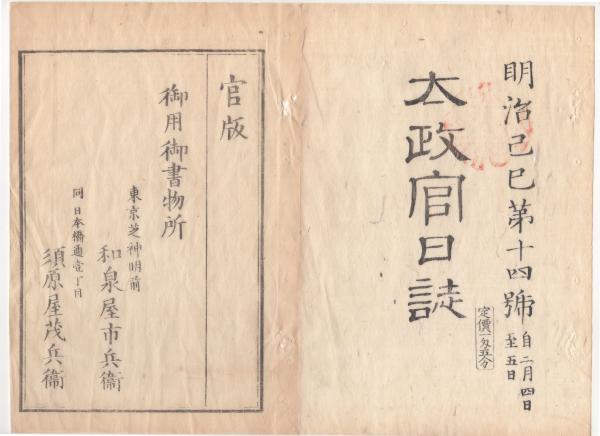 明治己巳第十四號
自二月四日
至五日
太政官日誌
定價一匁五分
官版
御用御書物所
東京芝神明前
和泉屋市兵衞
同日本橋通壹丁目
須原屋茂兵衞